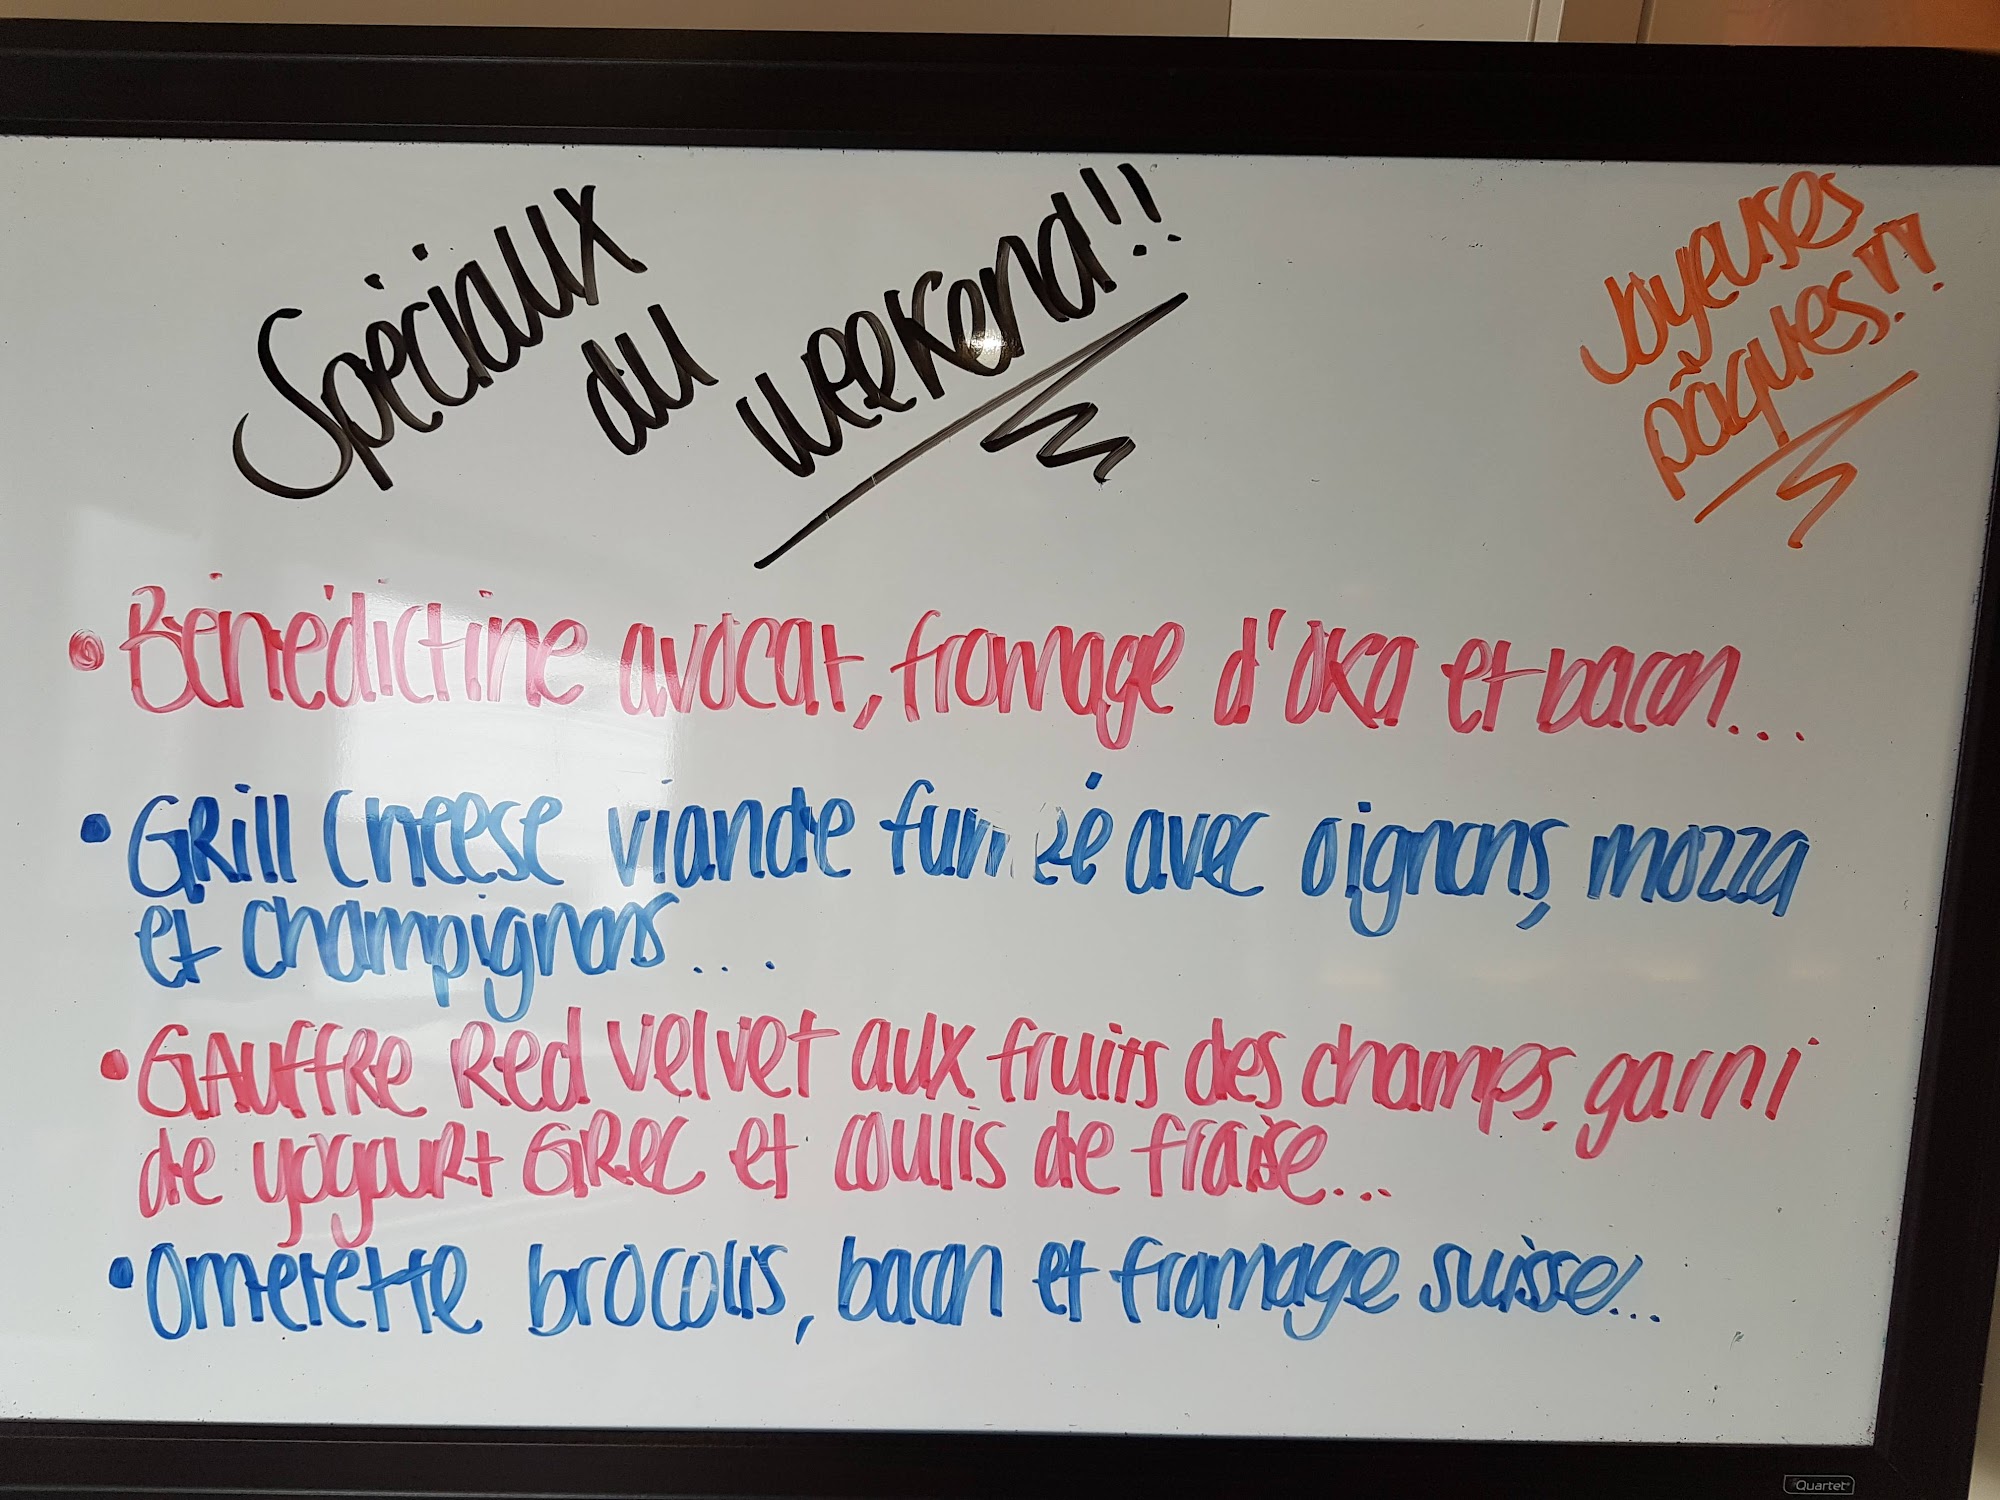 Spéciaux du weekend!!
Joyeuses
pâques!!!
• Bénédictine avocat, fromage d'oka et bacon...
• Grill cheese viande fumée avec oignons, mozza
et champignons...
• Gauffre Red velvet aux fruits des champs, garni
de yogourt Grec et coulis de fraise...
• Omelette brocolis, bacon et fromage suisse...
Quartet